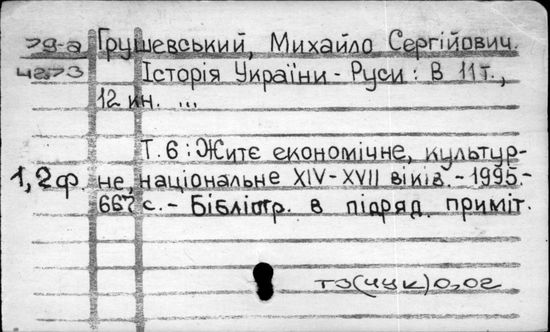 79-а Грушевський, Михайло Сергійович.
4873 Історія України-Руси: В 11т.,
12 кн. ...
Т. 6: Житє економічне, культур-
1,2ф. не, національне XIV-XVII віків.-1995.-
667 с.- Бібліогр. в підряд. приміт.
Т3(4УК)0,02